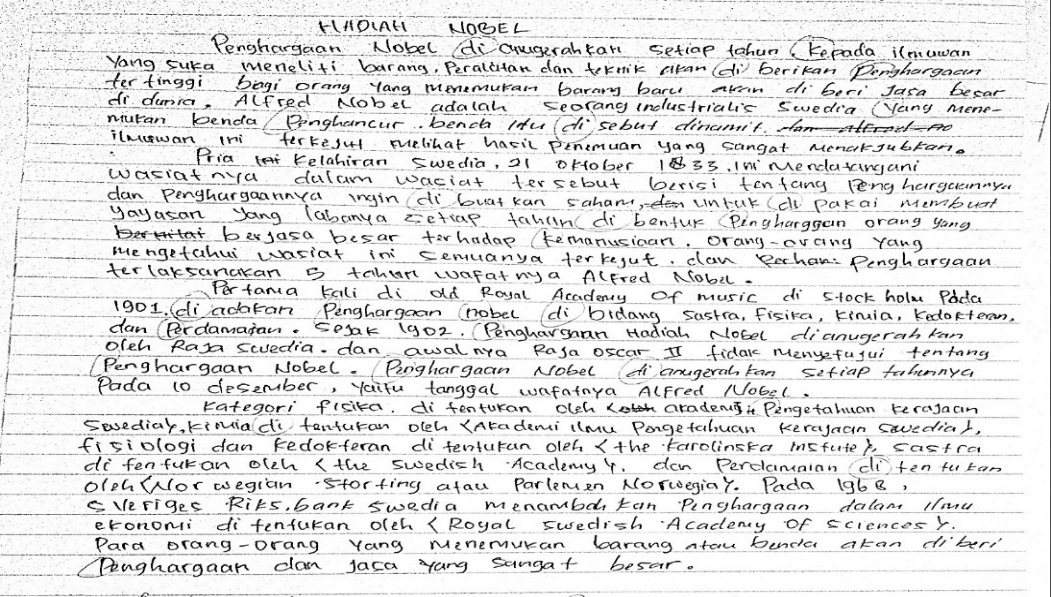 HADIAH NOBEL
Penghargaan Nobel di anugerahkan setiap tahun. Kepada ilmuwan
Yang suka meneliti barang, Peralatan dan teknik akan di berikan Penghargaan
ter tinggi bagi orang yang menemukan barang baru akan di beri Jasa besar
di dunia. Alfred Nobel adalah seorang industrialis Swedia Yang mene-
mukan benda Penghancur. benda itu di sebut dinamit. dan alfred no
ilmuwan ini terkejut melihat hasil penemuan yang sangat menakjubkan.
Pria kelahiran Swedia, 21 Oktober 1833, ini mendatangani
wasiatnya dalam wasiat tersebut berisi tentang Penghargaannya
dan Penghargaannya ingin di buatkan saham, untuk di pakai membuat
yayasan yang labanya setiap tahun di bentuk Penghargaan orang yang
berjasa besar terhadap kemanusiaan. Orang-orang yang
mengetahui wasiat ini semuanya terkejut. dan Penghargaan
terlaksanakan 5 tahun wafatnya Alfred Nobel.
Pertama kali di old Royal Academy Of music di Stock holm Pada
1901. di adakan Penghargaan nobel di bidang sastra, Fisika, Kimia, Kedokteran,
dan Perdamaian. Sejak 1902. Penghargaan Hadiah Nobel dianugerah kan
oleh Raja Swedia. dan awalnya Raja Oscar II tidak menyetujui tentang
Penghargaan Nobel. Penghargaan Nobel di anugerah kan setiap tahunnya
Pada 10 desember, yaitu tanggal wafatnya Alfred Nobel.
Kategori fisika. di tentukan oleh akademi Pengetahuan kerajaan
Swedia), kimia di tentukan oleh (Akademi ilmu Pengetahuan kerajaan swedia),
fisiologi dan kedokteran di tentukan oleh (the karolinska instute), sastra
di tentukan oleh (the Swedish Academy), dan Perdamaian di ten tu kan
oleh (Nor wegian Storting atau Parlemen Norwegia). Pada 1968,
Sveriges Riks, bank Swedia menambah kan Penghargaan dalam ilmu
ekonomi di tentukan oleh (Royal Swedish Academy Of sciences).
Para orang-orang yang menemukan barang atau benda akan di beri
Penghargaan dan jasa yang sangat besar.